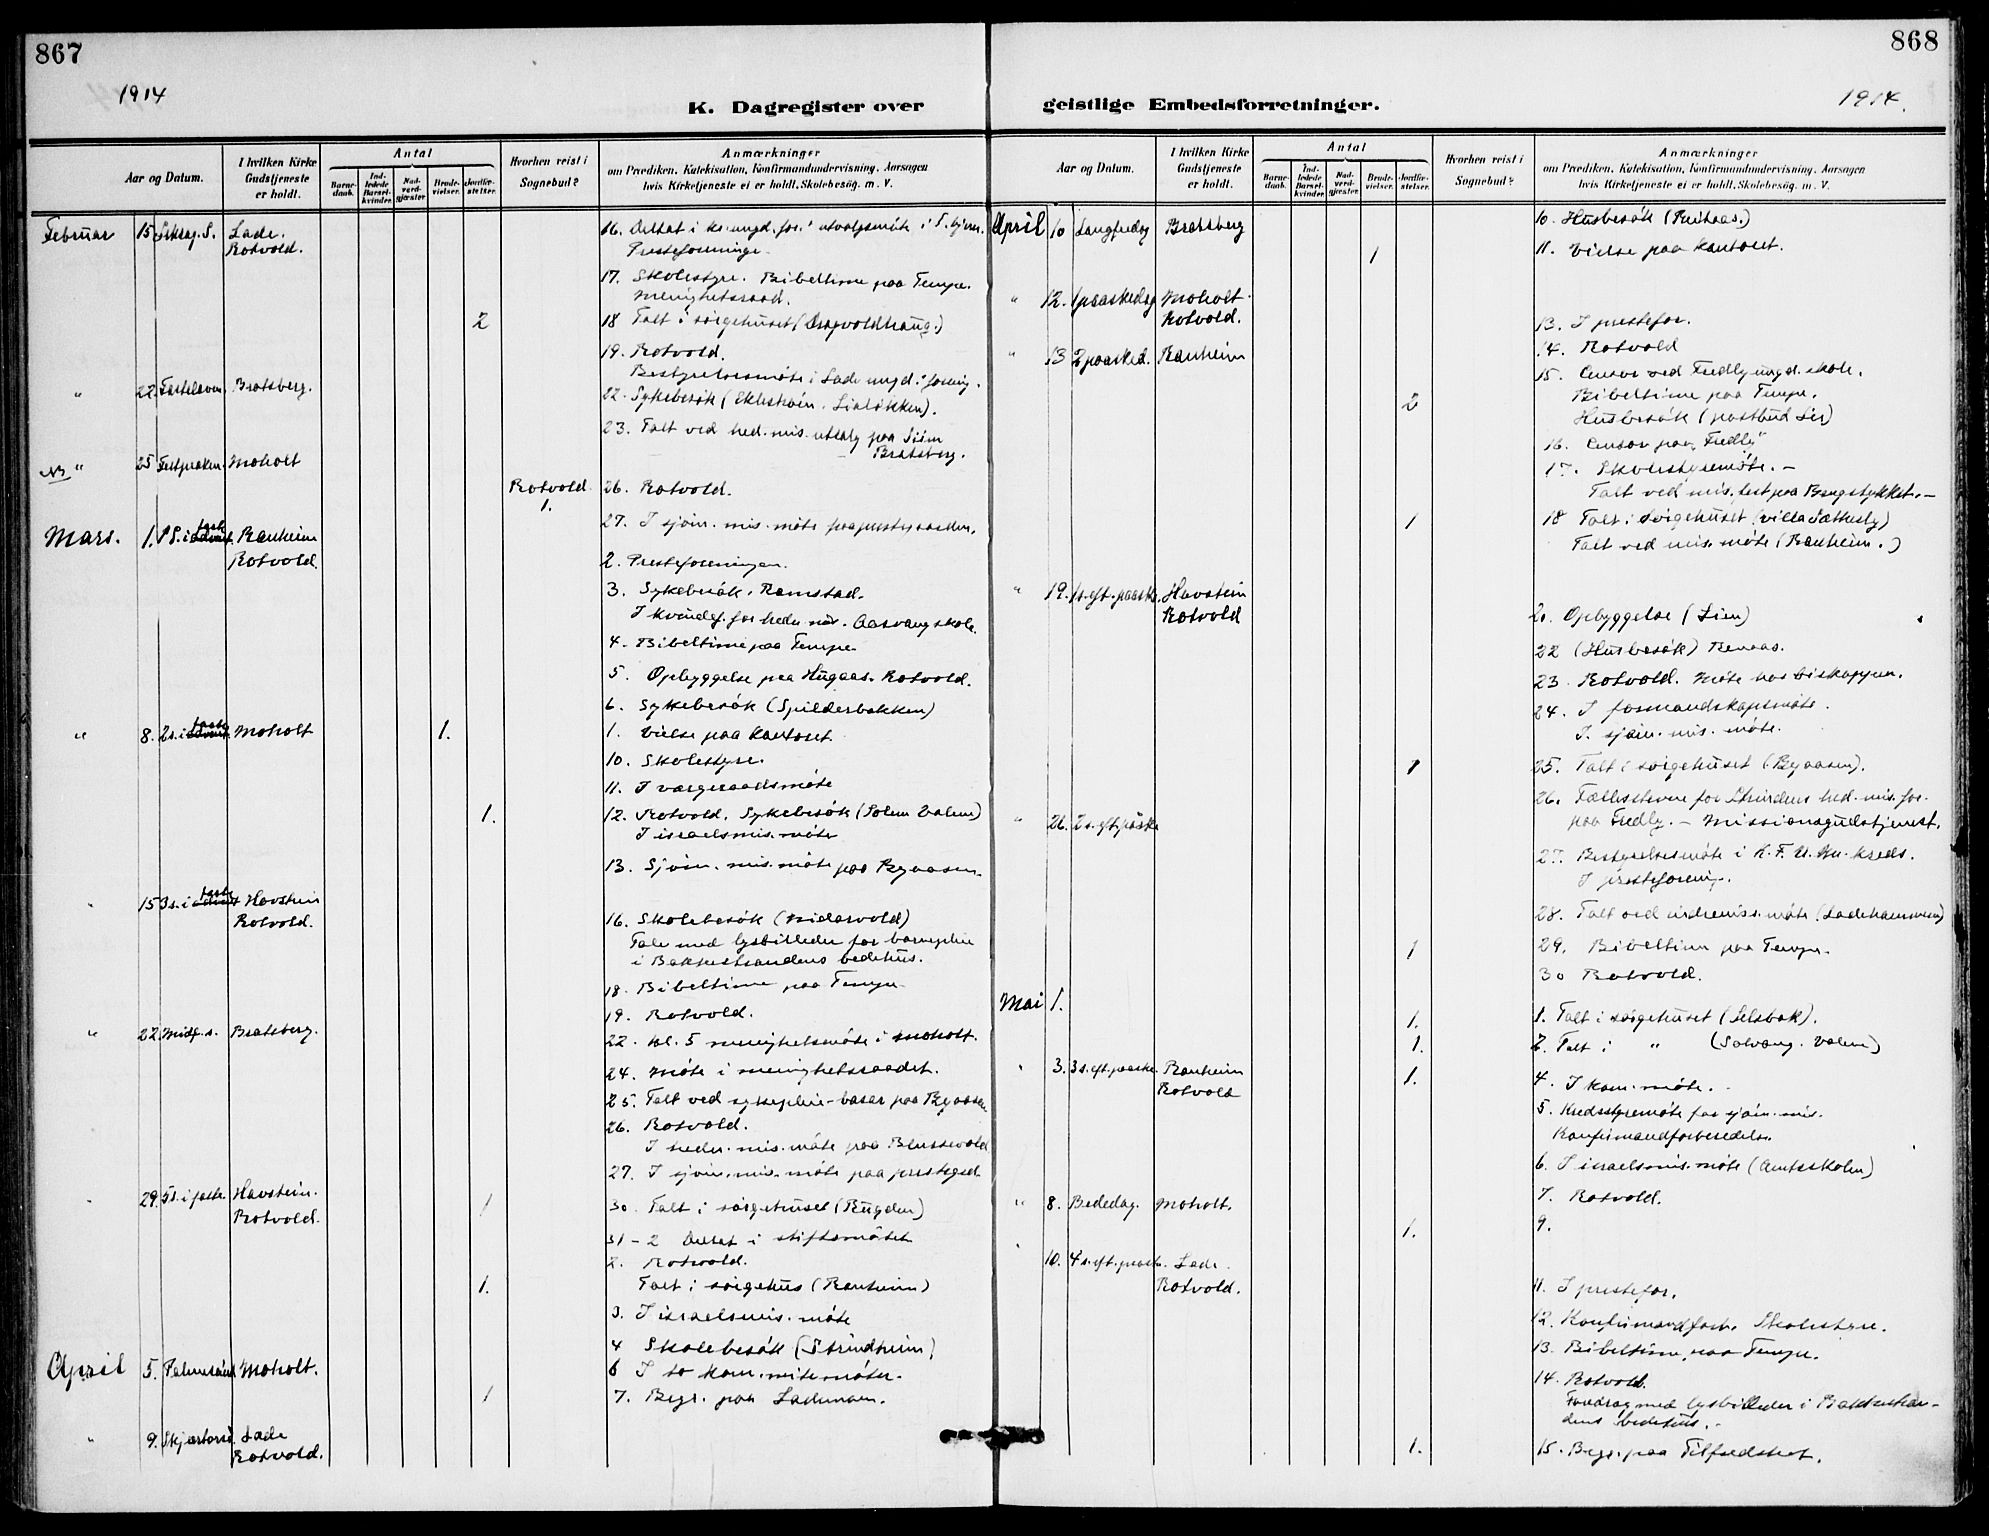 867
1914
K. Dagregister over
Aar og Datum.
I hvilken Kirke Gudstjeneste er holdt.
Antal
Barnedaab.
Indledede Barselkvinder.
Nadverdgjæster.
Brudevielser.
Jordfæstelser.
Hvorhen reist i Sognebud?
Anmærkninger
om Prædiken, Katekisation, Konfirmandundervisning, Aarsagen
hvis Kirketjeneste ei er holdt, Skolebesøg, m. V.
Februar 15 S. Lade.
Rotvold.
16. Deltat i utvalgsmøte i
Presteforeninge
17. Skolestyre. Bibeltime paa Tempe.
Menighetsraad.
2 18 Talt i sørgehuset (Dragvoldhaug.)
19. Rotvold.
Bestyrelsesmøte i Lade ungd.forenig.
" 22. Fastelaven. Bratsberg.
22. Sykebesøk
23. Talt ved hed. mis. utsalg paa Siem
Bratsberg.
" 25 Moholt
Rotvold 1. 26. Rotvold.
27. I sjøm. mis. møte paa prestegaarden.
Mars. 1. 1 S. i faste Ranheim
Rotvold.
2. Presteforeningen.
3. Sykebesøk. Ramstad.
I kvindef. for hedn. mis. Aasvang skole.
4. Bibeltime paa Tempe
5. Opbyggelse paa Hugaas. Rotvold.
6. Sykebesøk (Spilderbakken)
" 8. 2 s. i faste Moholt 1. 1. Vielse paa kontoret.
10. Skolestyre.
11. I værgeraadsmøte
1. 12. Rotvold. Sykebesøk (Solem Valene)
I israelsmis. møte
13. Sjøm. mis. møte paa Byaasen.
" 15 3 s. i faste Havstein
Rotvold.
16. Skolebesøk (Nidarvold)
Tale med lysbilleder for barnepleie
i Bakkestrandens bedehus.
18. Bibeltime paa Tempe
19. Rotvold.
" 22. Midf. s. Bratsberg.
22. kl. 5 menighetsmøte i Moholt.
24. Møte i menighetsraadet.
25. Talt ved sykepleie-basar paa Byaasen
26. Rotvold.
I heden. mis. møte paa
27. I sjøm. mis. møte paa prestegd.
" 29. 5 s. i faste. Havstein.
Rotvold.
1 30. Talt i sørgehuset (Rugden)
31 - 2 Deltat i stiftsmøtet
2. Rotvold.
1. Talt i sørgehus (Ranheim)
3. I israelsmis. møte
4 Skolebesøk (Strindheim)
April 5. Palmesønd. Moholt.
6 I to kom. møter.
1 7. Begr. paa Lademoen.
" 9. Skjærtorsd. Lade
Rotvold.
868
1914.
geistlige Embedsforretninger.
Aar og Datum.
I hvilken Kirke Gudstjeneste er holdt.
Antal
Barnedaab.
Indledede Barselkvinder.
Nadverdgjæster.
Brudevielser.
Jordfæstelser.
Hvorhen reist i Sognebud?
Anmærkninger
om Prædiken, Katekisation, Konfirmandundervisning, Aarsagen
hvis Kirketjeneste ei er holdt, Skolebesøg, m. V.
April 10 Langfredag Bratsberg
10. Husbesøk
1 11. Vielse paa kontoret.
" 12. 1 paaskedag Moholt
Rotvold.
13. I prestefor.
" 13 2 paasked. Ranheim
14. Rotvold
15. Censor ved Fredly ungd. skole.
2 Bibeltime paa Tempe.
Husbesøk (postbud Lie)
16. Censor paa "Fredly"
17. Skolestyremøte. -
Talt ved mis. fest paa Bergstykket. -
1 18 Talt i sørgehuset (Villa Sætherly)
Talt ved mis. møte (Ranheim.)
" 19. 1 s. eft. paaske. Havstein
Rotvold
20. Opbyggelse (Lien)
22 (Husbesøk) Renaas.
23. Rotvold. Møte hos biskoppen.
24. I formandskapsmøte.
I. sjøm. mis. møte.
1 25. Talt i sørgehuset (Byaasen).
26. Fællesstevne for Strindens hed. mis. for.
" 26. 2 s. eft. påske paa Fredly. - Missionsgudstjenest.
27. Bestyrelsesmøte i K. F. U. M. kreds.
I prestefoening.
28. Talt ved indremiss. møte (Ladehammeren)
1 29. Bibeltime paa Tempe.
30 Rotvold.
Mai 1.
1. 1. Talt i sørgehuset (Selsbak).
1. 2. Talt i " (Solvang. Valene)
" 3. 3 s. eft. paaske. Ranheim
Rotvold
1. 4. I kom. møte.
5. Kredsstyremøte for sjøm. mis.
Konfirmandforberedelse.
6. I israelsmis. møte (Amtsskolen)
7. Rotvold.
" 8. Bededag. Moholt.
1. 9.
" 10. 4 s. eft. paaske. Lade.
Rotvold.
11. I prestefor.
12. Konfirmandforb. Skolestyre.
13. Bibeltime paa Tempe.
14. Rotvold.
Foredrag med lysbilleder i Bakkestran-
dens bedehus. -
1. 15. Begr. paa Tilfredshet.